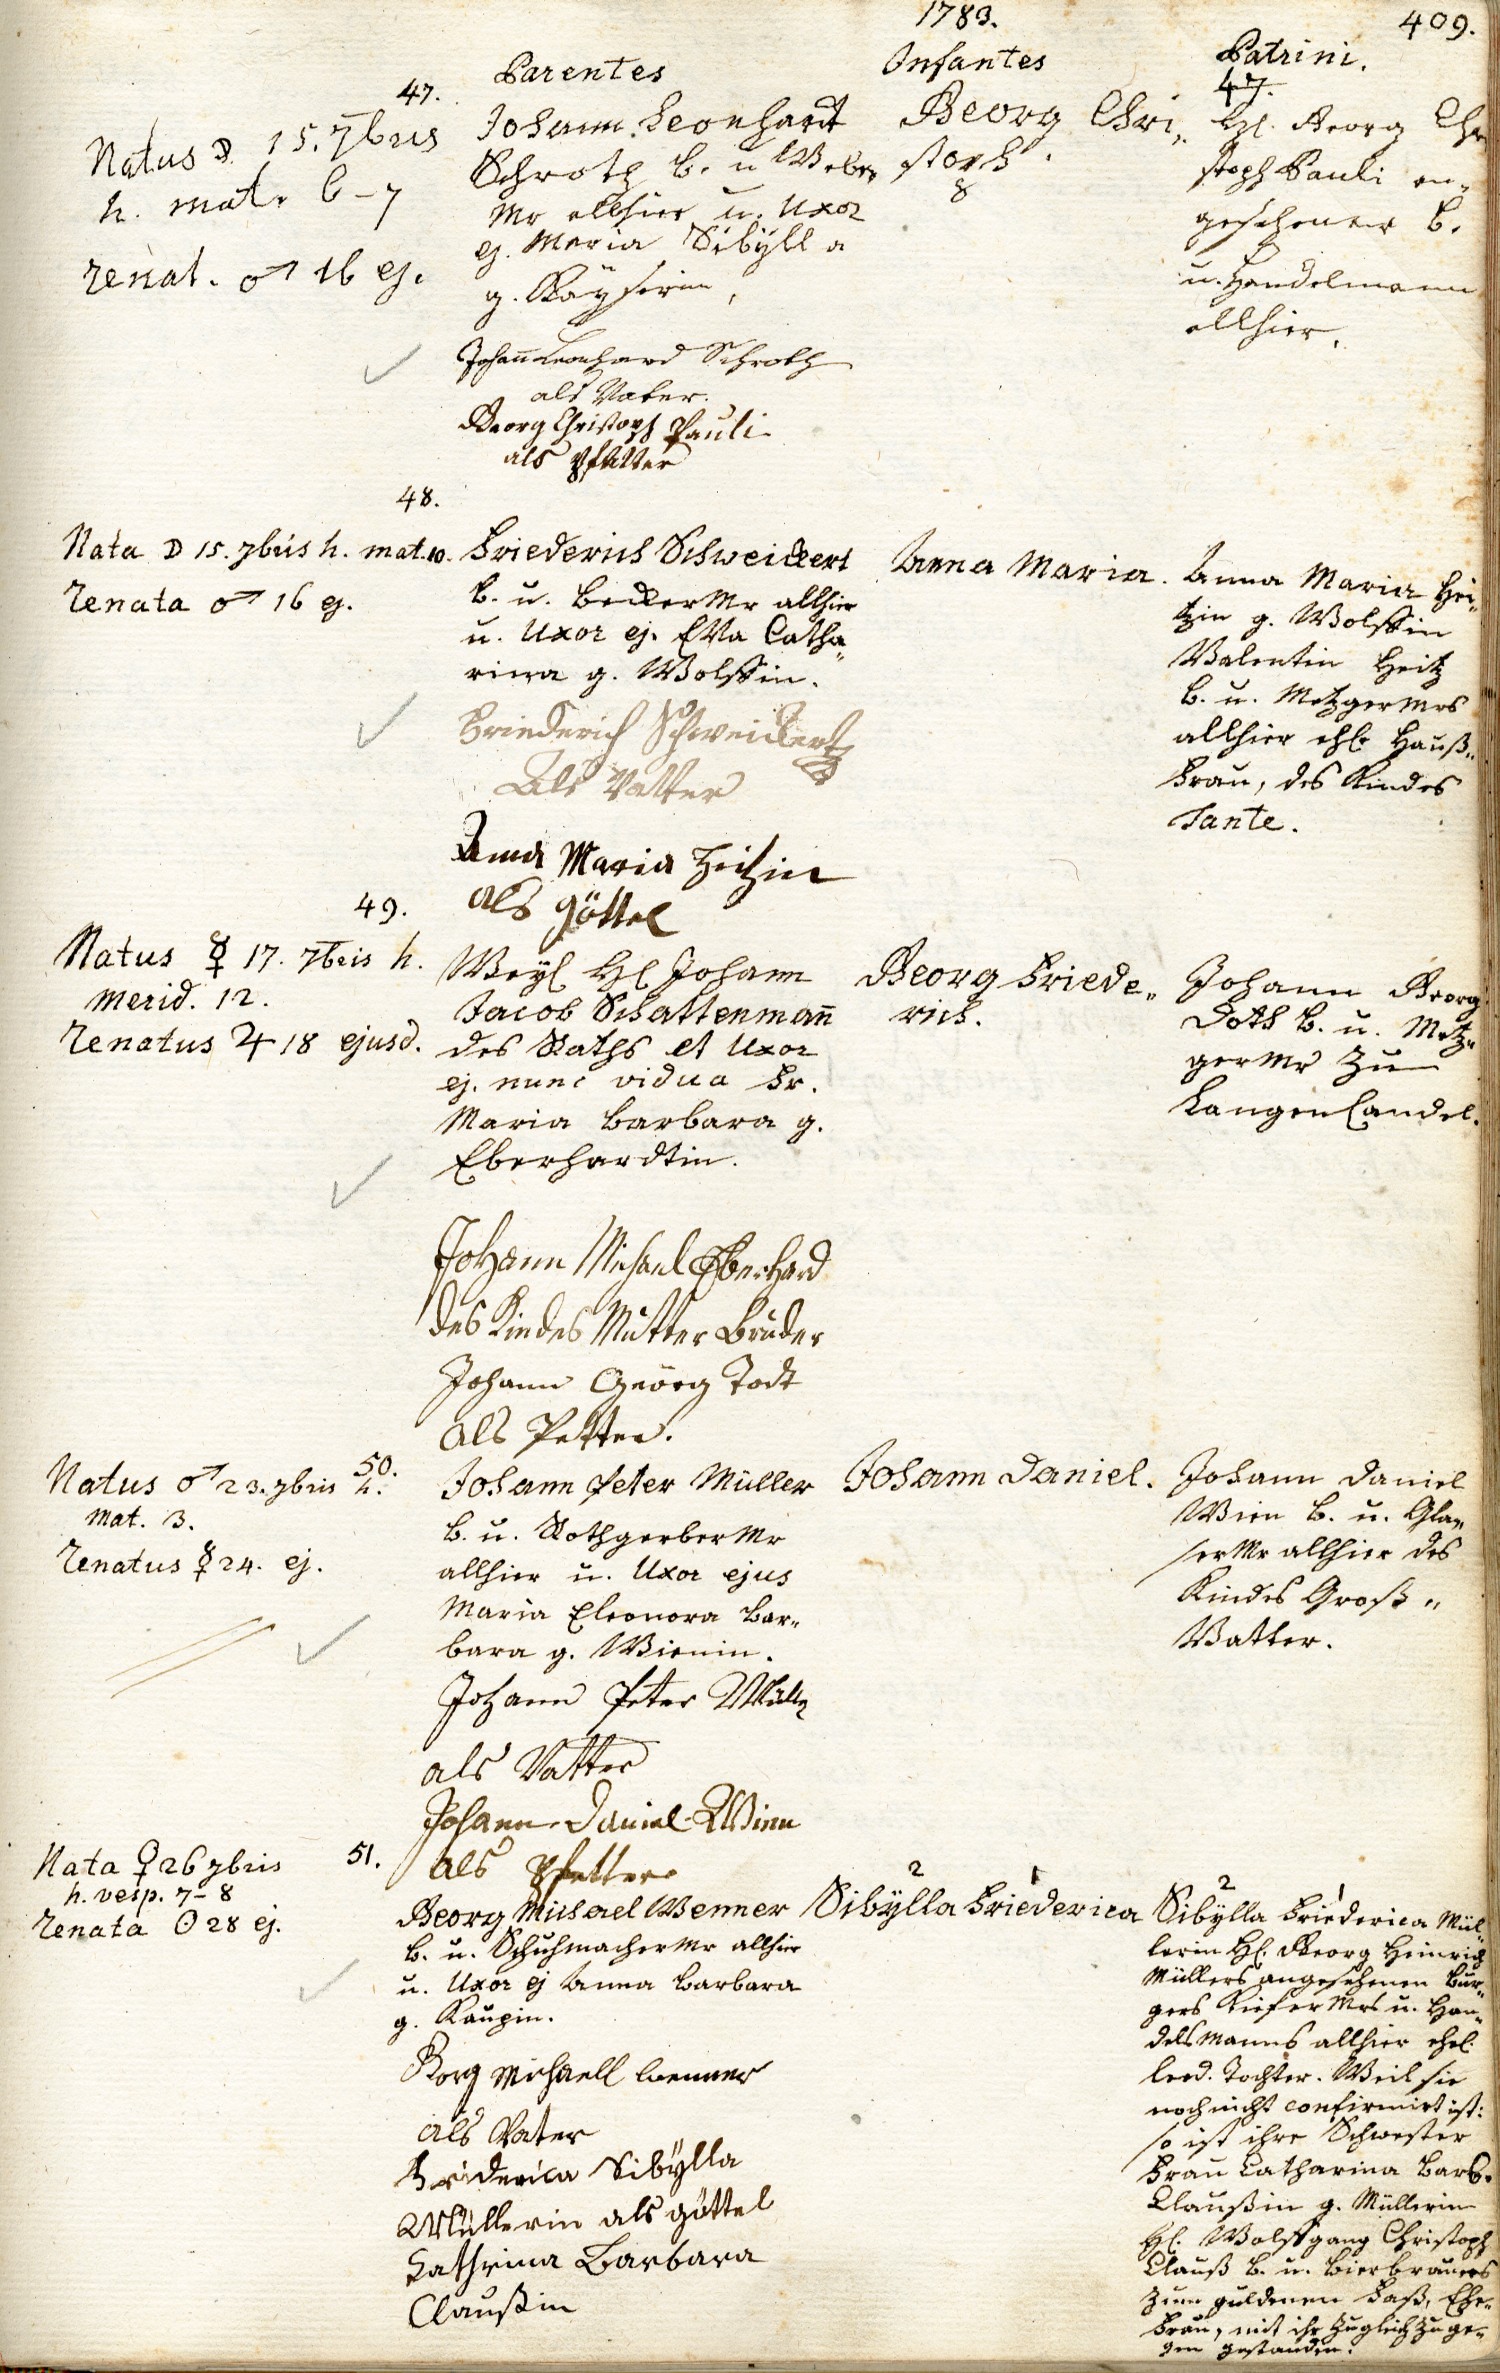 1783.
409.
Parentes
Infantes
Patrini.
47.
Natus ☽ 15. 7bris
h. mat. 6-7
renat. ♂ 16 ej.
Johann Leonhardt
Schroth b. u Weber
Mr allhier u. Uxor
ej. Maria Sibÿlla
g. Kaÿserin,
Johan Leonhard Schroth
als Vater.
Georg Christoph Pauli
als Pfetter
Georg Chri„
stoph.
47.
Hl. Georg Chri
stoph Pauli an„
gesehener b.
u. Handelmann
allhier.
48.
Nata ☽ 15. 7bris h. mat. 10.
renata ♂ 16 ej.
Friederich Schweickert
b. u. Becker Mr allhier
u. Uxor ej. Eva Catha„
rina g. Wolffin.
Friederich Schweickert
Als Vatter
Anna Maria Heitzin
als göttel
Anna Maria.
Anna Maria Hei„
tzin g. Wolffin
Valentin Heitz
b. u. Metzger Mrs
allhier ehl. Hauß„
frau, des Kindes
Tante.
49.
Natus ☿ 17. 7bris h.
merid. 12.
renatus ♃ 18 ejusd.
Weyl Hl Johann
Jacob Schattenmañ
des Raths et Uxor
ej. nunc vidua Fr.
Maria Barbara g.
Eberhardtin.
Johann Michael Eberhard
des Kindes Mutter Bruder
Johann Georg Todt
als Petter.
Georg Friede„
rich.
Johann Georg
Doth b. u. Metz„
ger Mr zu
Langen Candel.
50.
Natus ♂ 23. 7bris h.
mat. 3.
renatus ☿ 24. ej.
Johann Peter Müller
b. u. Rothgerber Mr
allhier u. Uxor ejus
Maria Eleonora Bar„
bara g. Wienin.
Johann Peter Müller
als Vatter
Johann Daniel Wien
als Pfetter
Johann Daniel.
Johann Daniel
Wien b. u. Gla„
ser Mr allhier des
Kindes Groß„
Vatter.
51.
Nata ♀ 26 7bris
h. vesp. 7-8
renata ☉ 28 ej.
Georg Michael Wenner
b. u. Schuhmacher Mr allhier
u. Uxor ej Anna Barbara
g. Raupin.
Gorg Michaell Wenner
als Vater
Friderica Sibÿlla
Müllerin als göttel
Kathrina Barbara
Claußin
2 1
Sibÿlla Friederica
2 1
Sibÿlla Friederica Mül„
lerin Hl. Georg Heinrich
Müllers angesehenen Bur„
gers Kiefer Mrs u. Han„
delsmanns allhier ehel.
leed. Tochter. Weil sie
noch nicht confirmirt ist:
so ist ihre Schwester
Frau Catharina Barb.
Claußin g. Müllerin
Hl. Wolffgang Christoph
Clauß b. u. Bierbrauers
zum guldenen Faß, Ehe„
frau, mit ihr zugleich zuge„
gen gestanden.